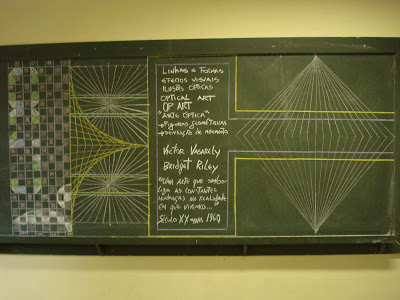 LINHAS E FORMAS
EFEITOS VISUAIS
ILUSÕES ÓPTICAS
OPTICAL ART
OP ART
"ARTE ÓPTICA"
→FIGURAS GEOMÉTRICAS
→SENSAÇÃO DE MOVIMENTO
VICTOR VASARELY
BRIDGET RILEY
UMA ARTE QUE SIMBO-
LIZA AS CONSTANTES
MUDANÇAS NA REALIDADE
EM QUE VIVEMOS...
SÉCULO XX 1960